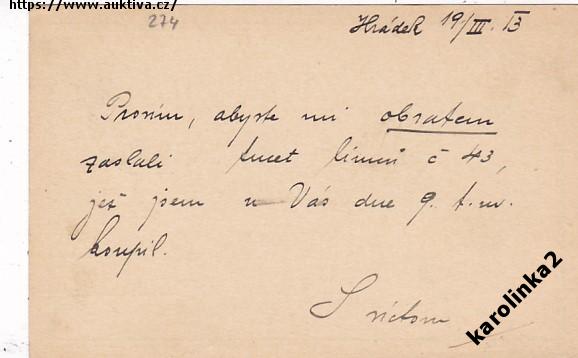 https://www.auktiva.cz/
274
Hrádek 19/III. 13
Prosím, abyste mi obratem
zaslali tucet límců č 43,
jež jsem u Vás dne 9. t.m.
koupil.
S úctou
karolinka2